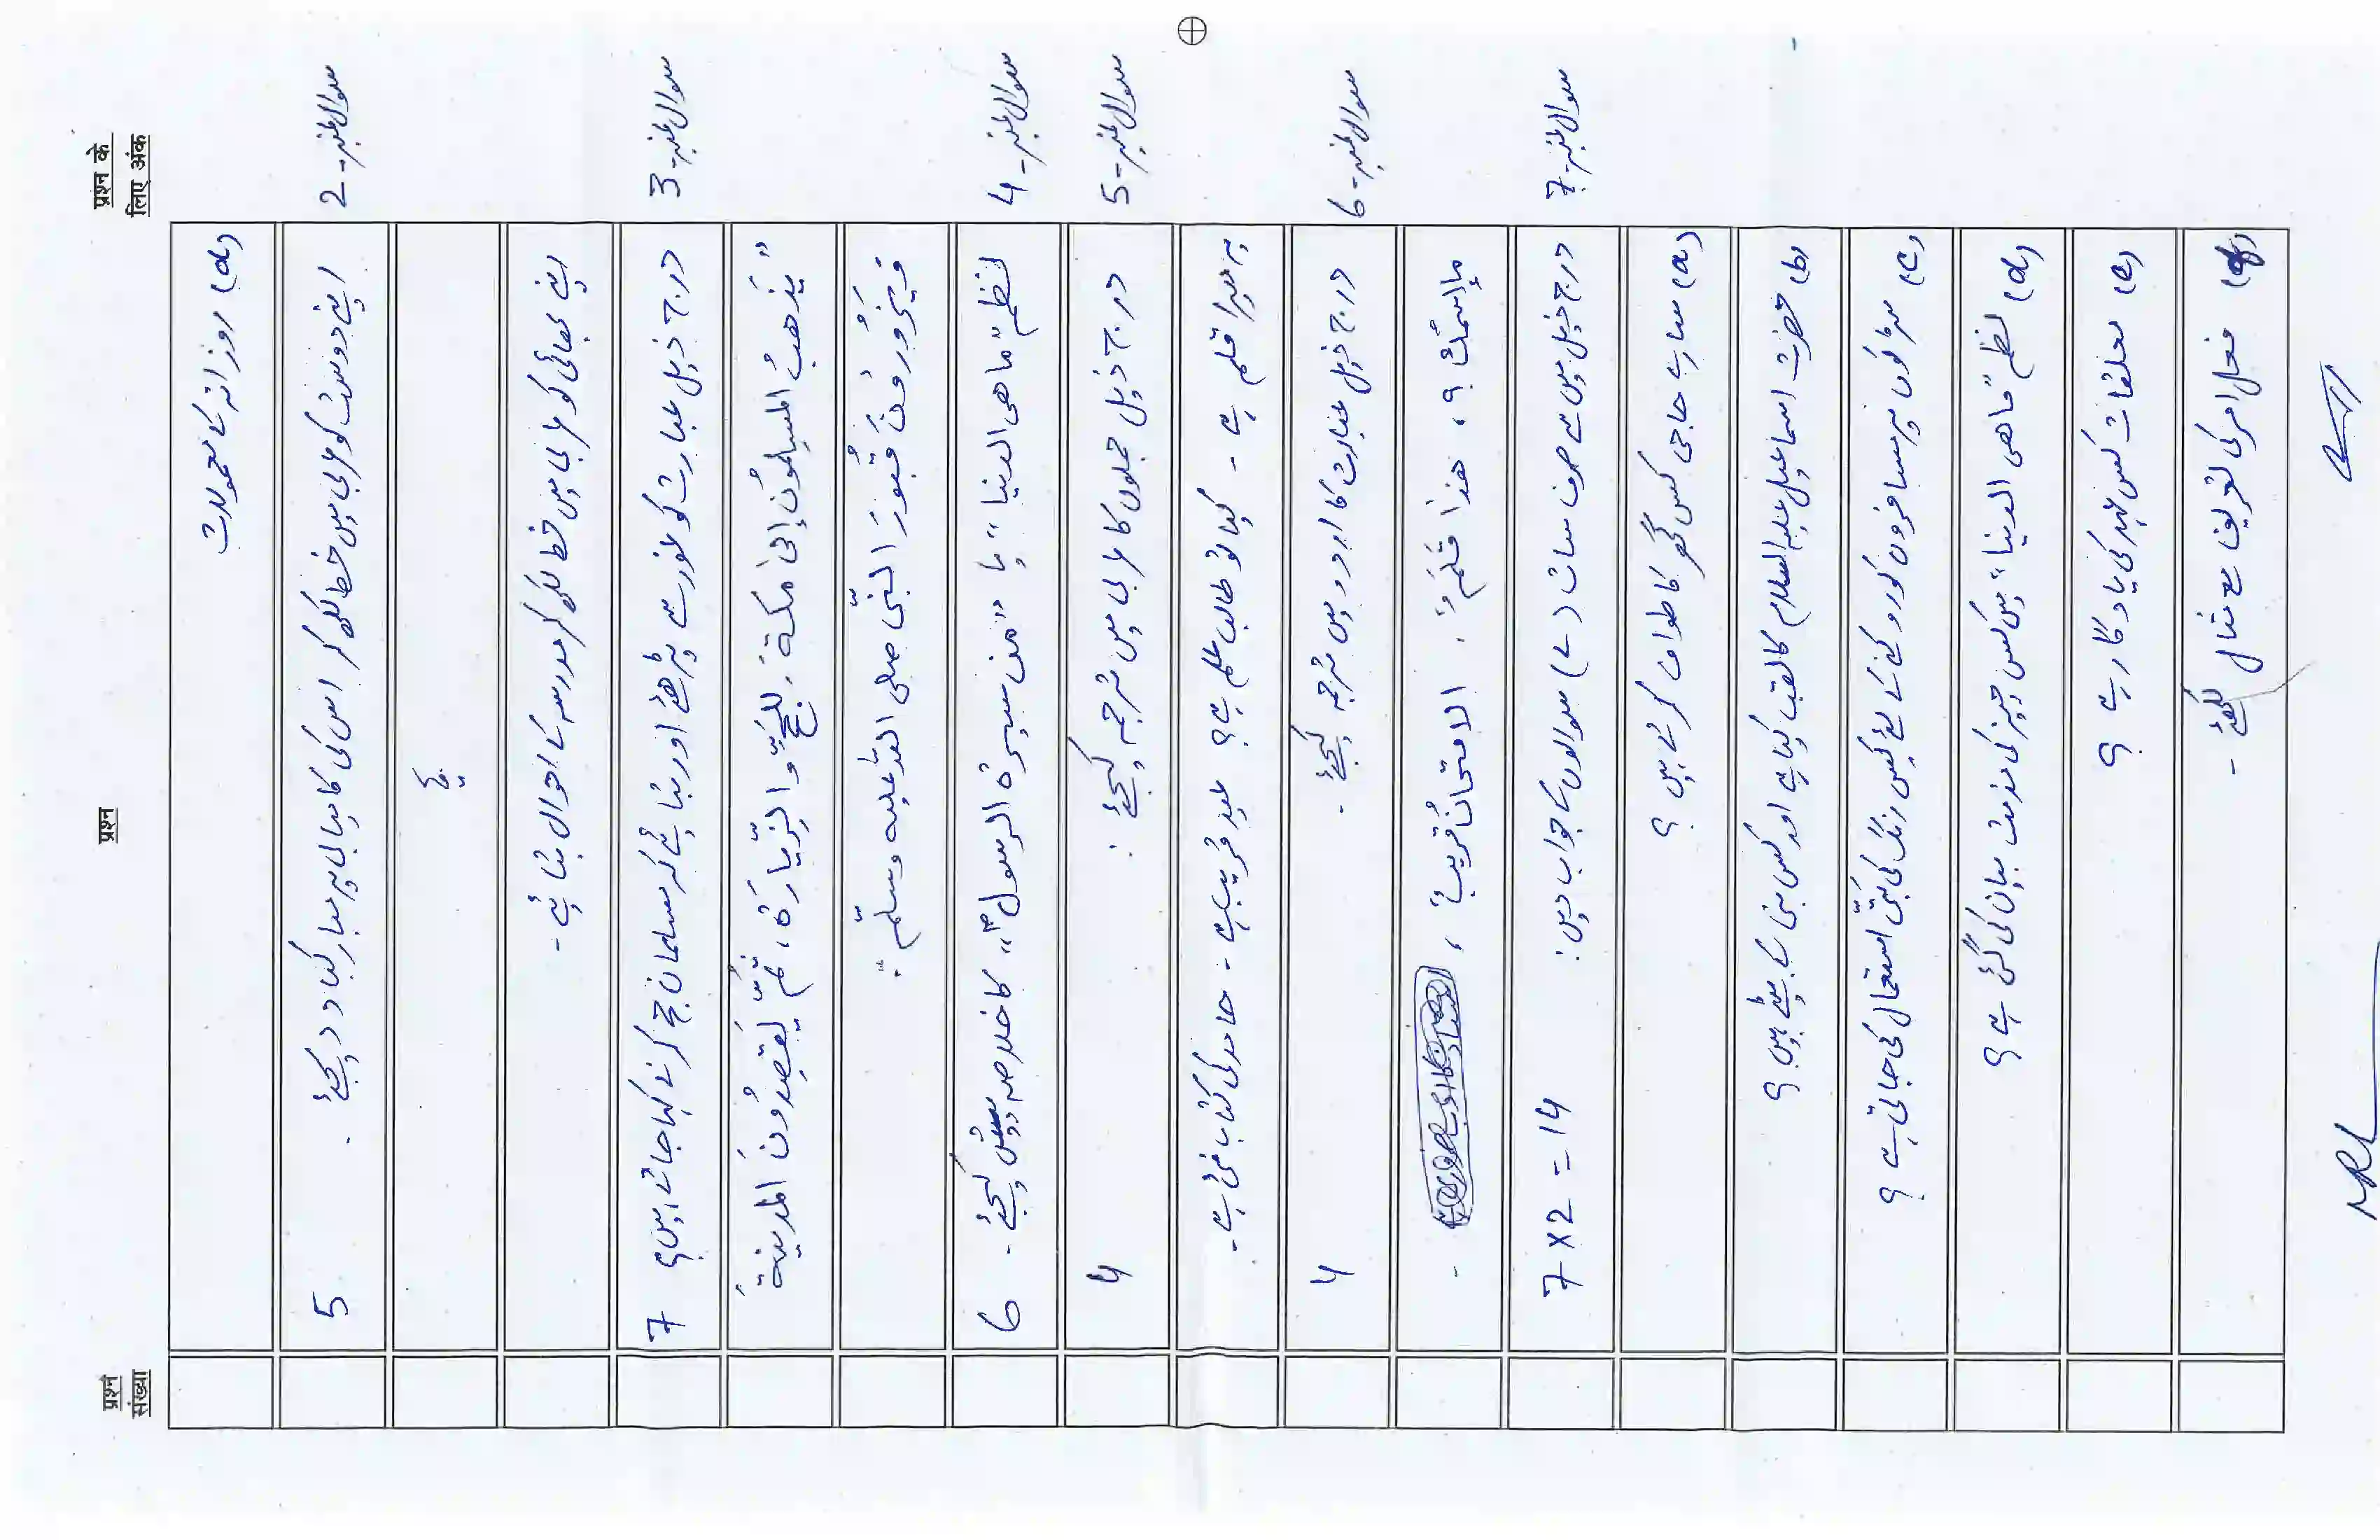 प्रश्न संख्या
प्रश्न
प्रश्न के लिए अंक
(d) روزانہ کے معمولات
سوال نمبر-2
اپنے دوست کو عربی میں خط لکھ کر اس کی کامیابی پر مبارکباد دیجئے۔ 5
یا
اپنے بھائی کو عربی میں خط لکھ کر مدرسہ کے احوال بتائیے۔
سوال نمبر-3
درج ذیل عبارت کو غور سے پڑھئے اور بتائیے کہ مسلمان حج کرنے کہاں جاتے ہیں؟ 7
"يَذْهَبُ المسلمُون إلىٰ مكةَ لِلحَجِّ و الزِّيارَة، ثُمَّ يَقصِدُونَ المدينةَ
فَيَزُورُونَ قُبُورَ النَّبِیّ صلی اللہ علیہ وسلّم"
سوال نمبر-4
نظم "ماهی الدنیا" یا "من سیرۃ الرسولؐ" کا خلاصہ پیش کیجئے۔ 6
سوال نمبر-5
درج ذیل جملوں کا عربی میں ترجمہ کیجئے: 4
یہ میرا قلم ہے۔ کیا تو طالب علم ہے؟ عید قریب ہے۔ حامد کی کتاب نئی ہے۔
سوال نمبر-6
درج ذیل عبارت کا اردو میں ترجمہ کیجئے۔ 4
ما إسمُك؟، هذا قَلَمٌ، الامتحانُ قريبٌ،
سوال نمبر-7
درج ذیل میں سے صرف سات (۷) سوالوں کے جواب دیں: 7x2=14
(a) سارے حاجی کس گھر کا طواف کرتے ہیں؟
(b) حضرت اسماعیل علیہ السلام کا لقب کیا ہے اور کس نبی کے بیٹے ہیں؟
(c) سڑکوں پر مسافروں کو روکنے کے لئے کس رنگ کی بتّی استعمال کی جاتی ہے؟
(d) نظم "ماهی الدنیا" میں کس چیز کی مذمت بیان کی گئی ہے؟
(e) معلقات کس عہد کی یادگار ہے؟
فعل امر کی تعریف مع مثال لکھئے۔